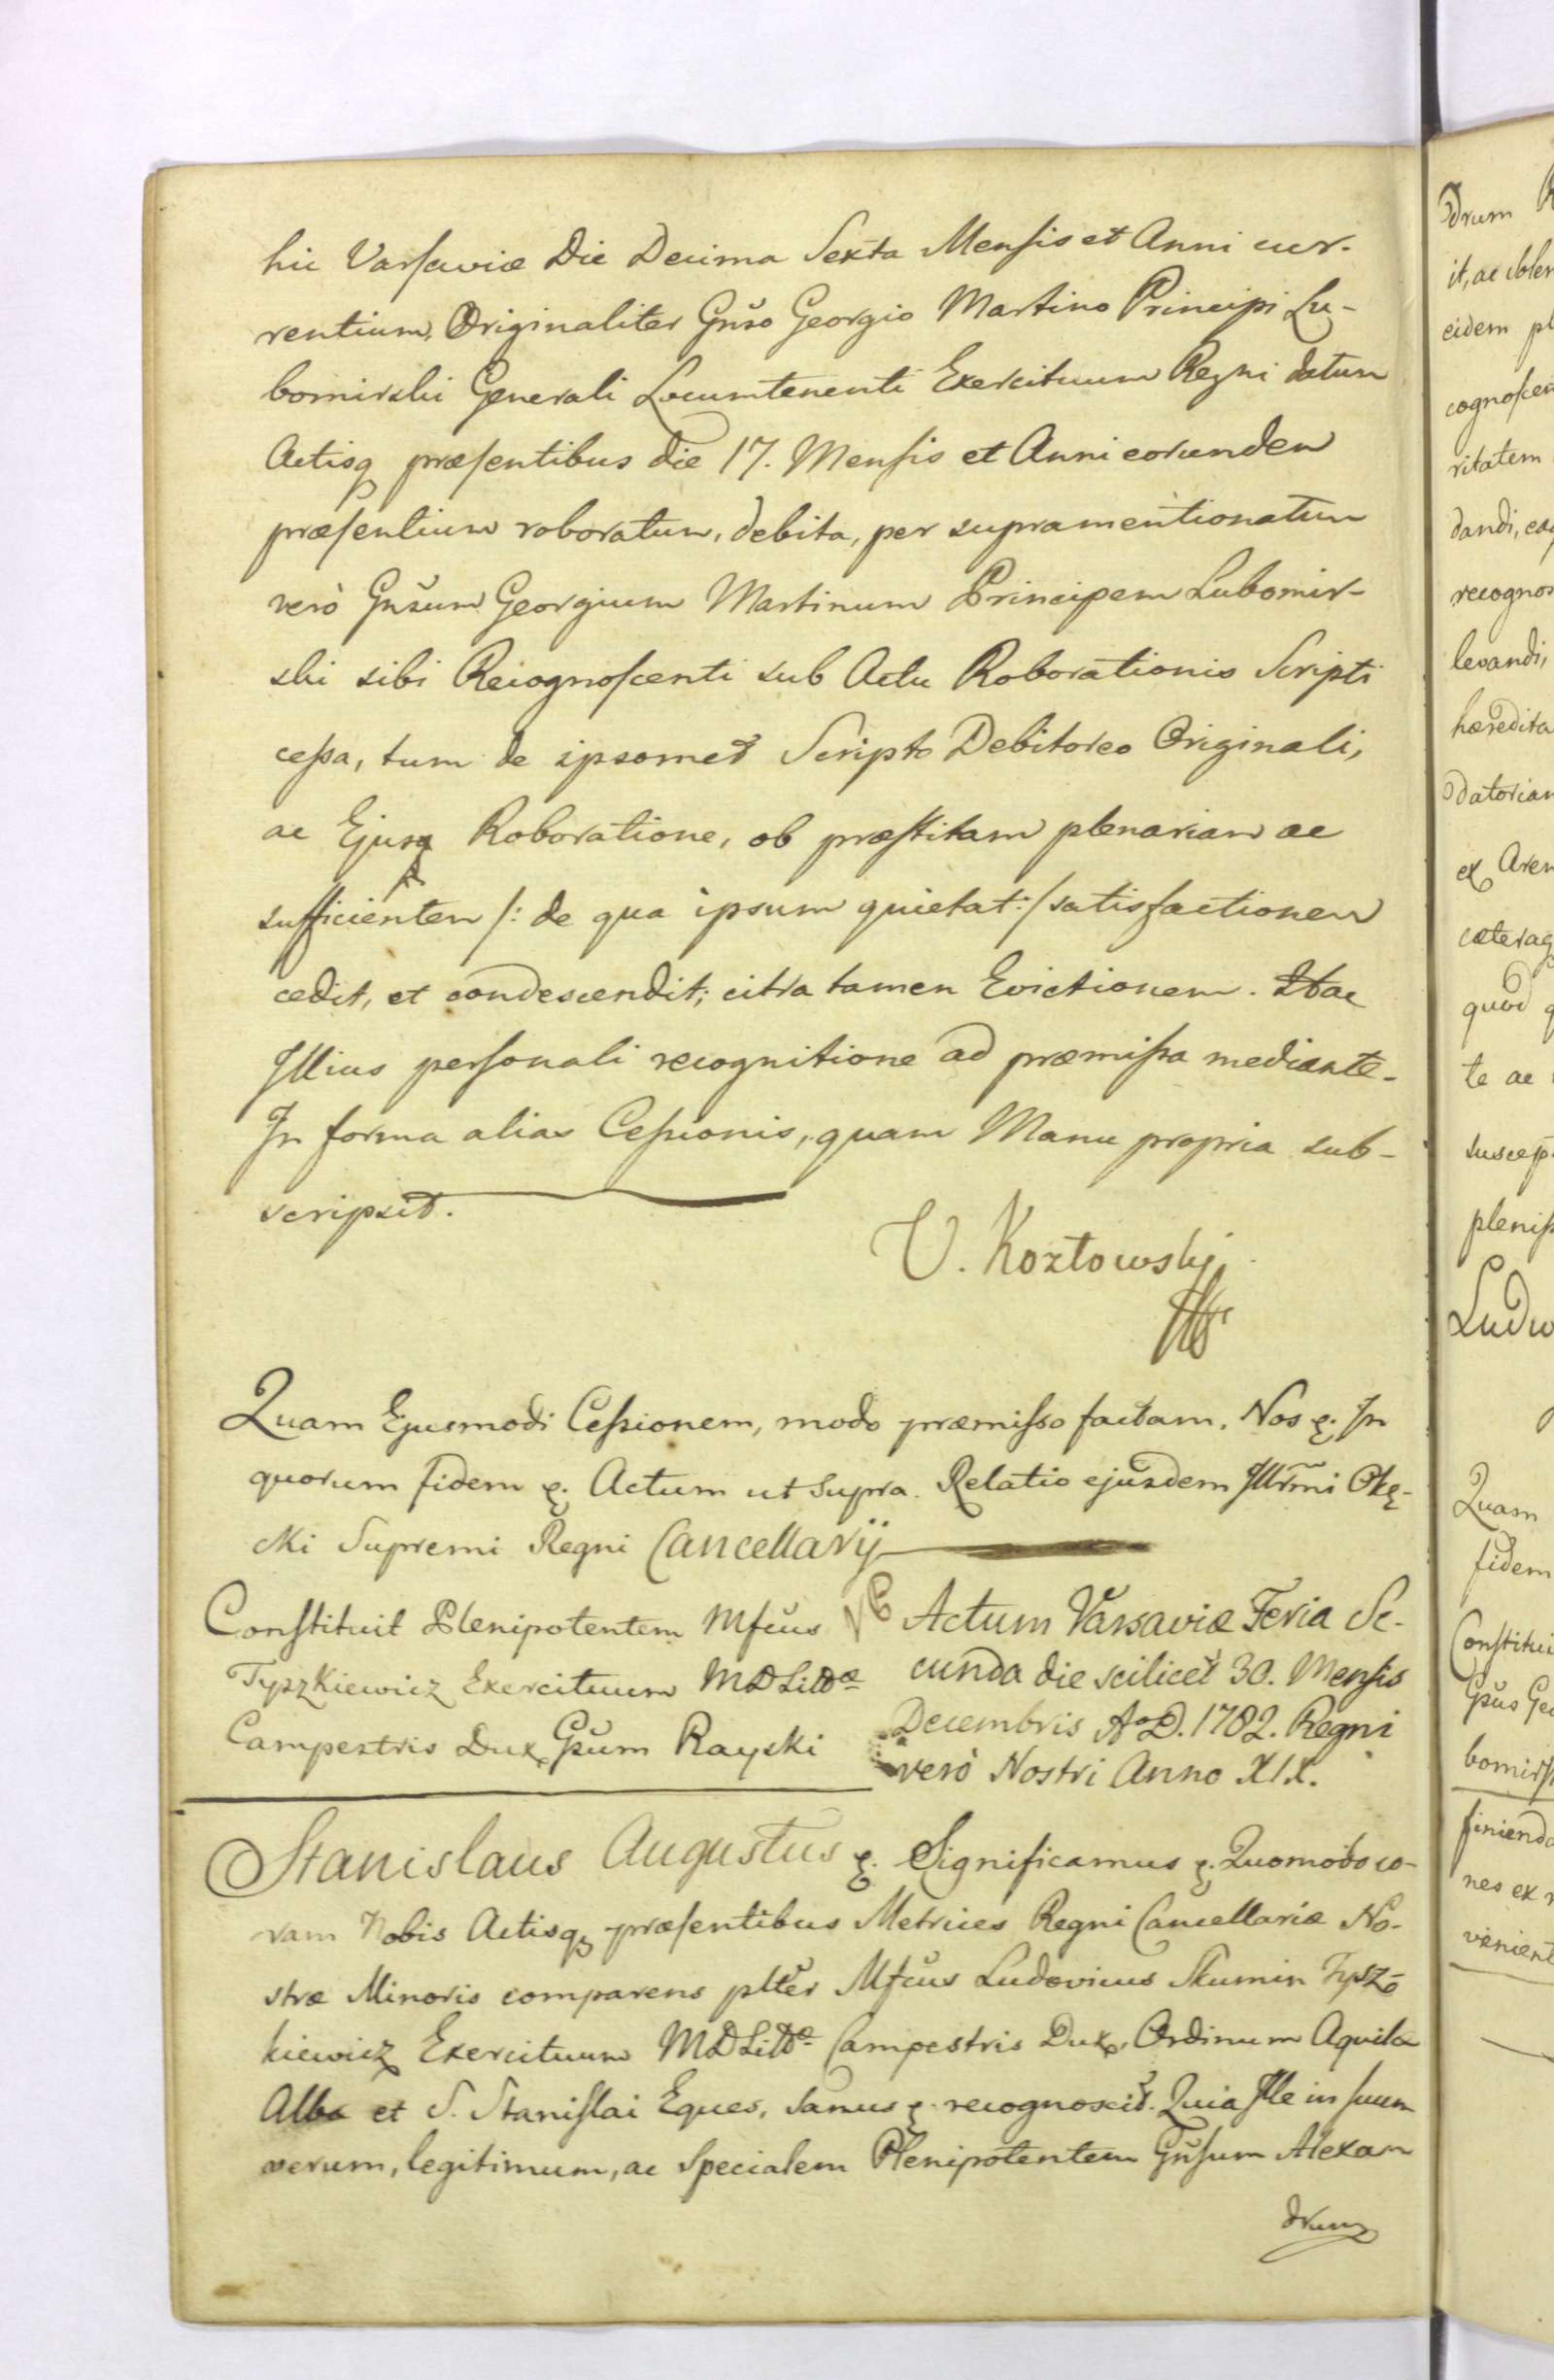 hic Varsaviæ Die Decima Sexta Mensis et Anni cur-
rentium, Originaliter Gnso Georgio Martino Principi Lu-
bomirski Generali Locumtenenti Exercituum Regni datum
Actisq præsentibus die 17. Mensis et Anni eorundem
præsentium roboratum, debita, per supramentionatum
verò Gnsum Georgium Martinum Principem Lubomir-
ski sibi Recognoscenti sub Actu Roborationis Scripti
cessa, tum de ipsomet Scripto Debitoreo Originali,
ac Ejusq Roboratione, ob præstitam plenariam ac
sufficientem /: de qua ipsum quietat :/ satisfactionem
cedit, et condescendit; citra tamen Evictionem. Hac
Illius personali recognitione ad præmissa mediante.
In forma alias Cessionis, quam Manu propria sub-
scripsit.
V. Kozłowskj
Quam Ejusmodi Cessionem, modo præmisso factam. Nos &. In
quorum fidem &. Actum ut supra. Relatio ejusdem Illrmi Okę-
cki Supremi Regni Cancellarij
Constituit Plenipotentem Mfcus
Tyszkiewicz Exercituum MDLittæ
Campestris Dux Gsum Rayski
Actum Varsaviæ Feria Se-
cunda die scilicet 30. Mensis
Decembris AoD. 1782. Regni
verò Nostri Anno XIX.
Stanislaus Augustus &. Significamus &. Quomodo co-
ram Nobis Actisq præsentibus Metrices Regni Cancellariæ No-
stræ Minoris comparens plter Mfcus Ludovicus Skumin Tysz-
kiewicz Exercituum MDLittæ Campestris Dux, Ordinum Aquilæ
Albæ et S. Stanislai Eques, sanus &. recognoscit. Quia Ille in suum
verum, legitimum, ac specialem Plenipotentem Gnsum Alexan
drum
drum
it, ac
eidem
cognoscen
ritatem
dandi,
recognos
levandi,
hæredita
datorian
ex Aren
cæteraq
quod
te ac
suscep
pleniss
Ludo
Quam
fidem
Constitui
Gsus Geo
bomirs
finienda
nes ex
venient